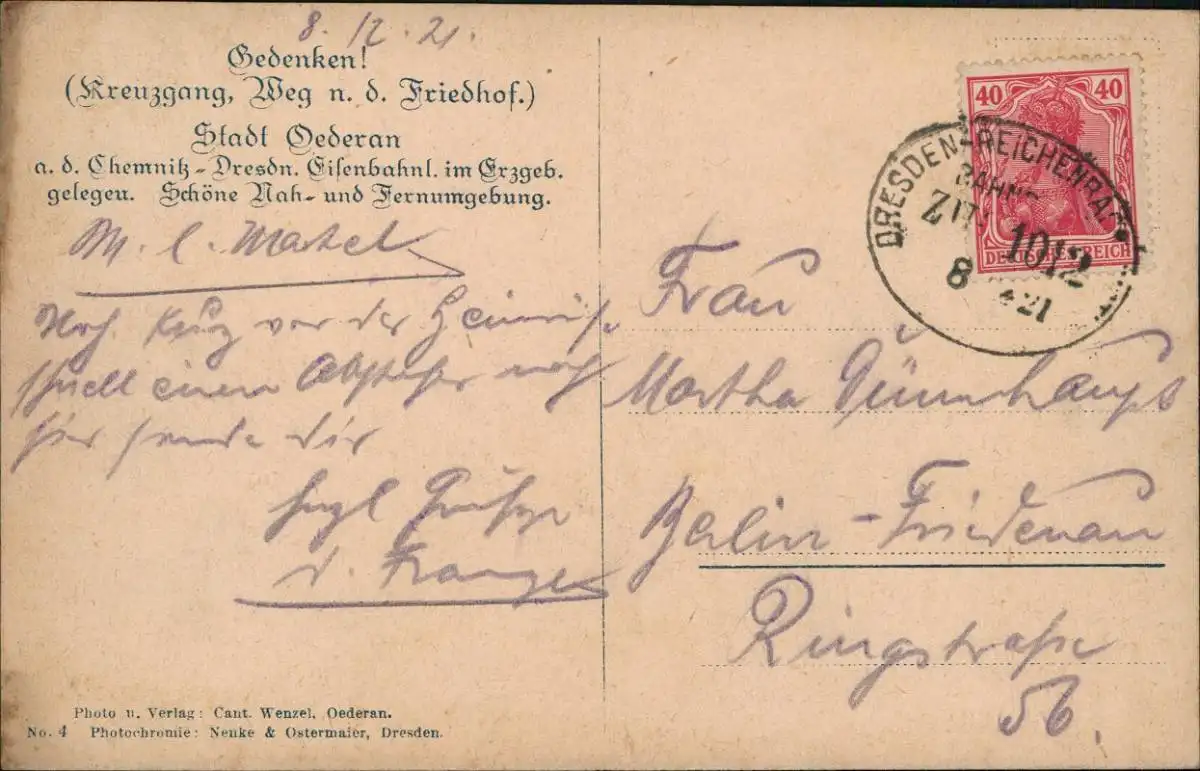 8. 12. 21.
Gedenken!
(Kreuzgang, Weg n. d. Friedhof.)
Stadt Oederan
a. d. Chemnitz-Dresdn. Eisenbahnl. im Erzgeb.
gelegen. Schöne Nah- und Fernumgebung.
M. l.
Noch kurz vor der Heimreise
schnell einen Abstecher nach
hier sende dir
herzl Grüße
d.
Photo u. Verlag: Cant. Wenzel, Oederan.
No. 4 Photochromie: Nenke & Ostermaier, Dresden.
40 40
DEUTSCHES REICH
DRESDEN-REICHENBA
BAHNP
ZUG 1012
8 12 21
Frau
Martha
Berlin-Friedenau
Ringstraße
56.